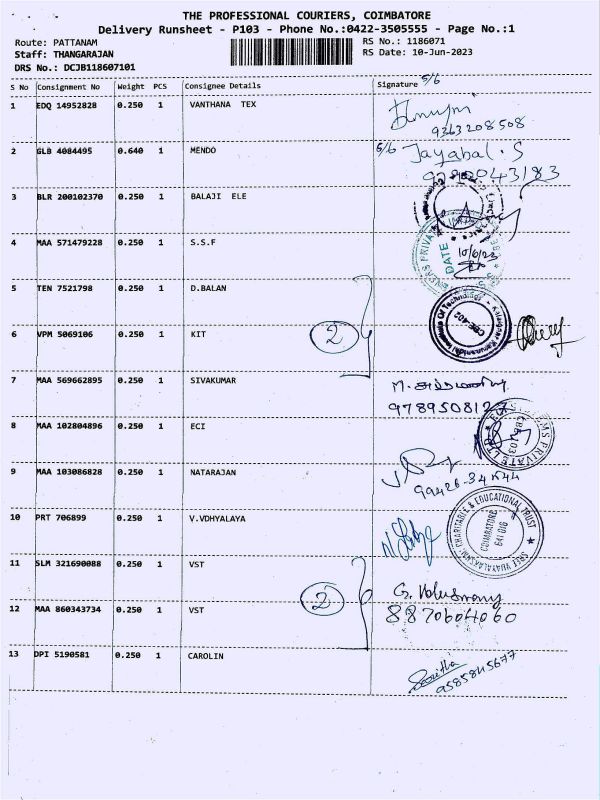 THE PROFESSIONAL COURIERS, COIMBATORE
Delivery Runsheet - P103 - Phone No.:0422-3505555 - Page No.:1
Route: PATTANAM RS No.: 1186071
Staff: THANGARAJAN RS Date: 10-Jun-2023
DRS No.: DCJB118607101
S No Consignment No Weight PCS Consignee Details Signature 5/6
1 EDQ 14952828 0.250 1 VANTHANA TEX
9363208508
2 GLB 4084495 0.640 1 MENDO 5/6 Jayabal.S
3 BLR 200102370 0.250 1 BALAJI ELE
4 MAA 571479228 0.250 1 S.S.F DATE 10/6/23
5 TEN 7521798 0.250 1 D.BALAN
Kalaignar Karunanidhi Institute Of Technology CBE-402
6 VPM 5069106 0.250 1 KIT 2
7 MAA 569662895 0.250 1 SIVAKUMAR
8 MAA 102804896 0.250 1 ECI
9 MAA 103086828 0.250 1 NATARAJAN
10 PRT 706899 0.250 1 V.VDHYALAYA
SREE VIJAYALAKSHMI CHARITABLE & EDUCATIONAL TRUST COIMBATORE 641 016
11 SLM 321690088 0.250 1 VST
12 MAA 860343734 0.250 1 VST 2
8870604060
13 DPI 5190581 0.250 1 CAROLIN
9585845677